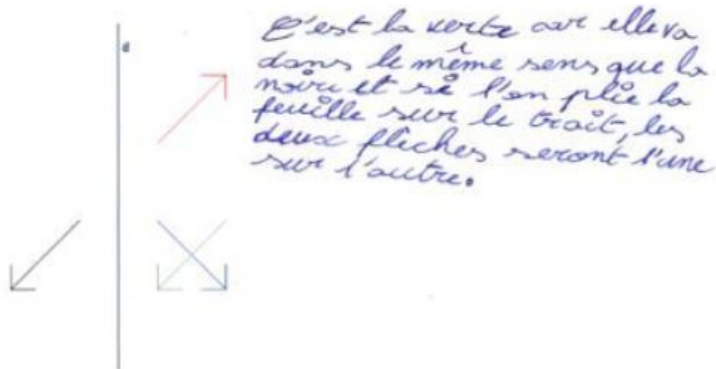 C'est la verte car elle va
dans le même sens que la
noire et si l'on plie la
feuille sur le trait, les
deux flèches seront l'une
sur l'autre.